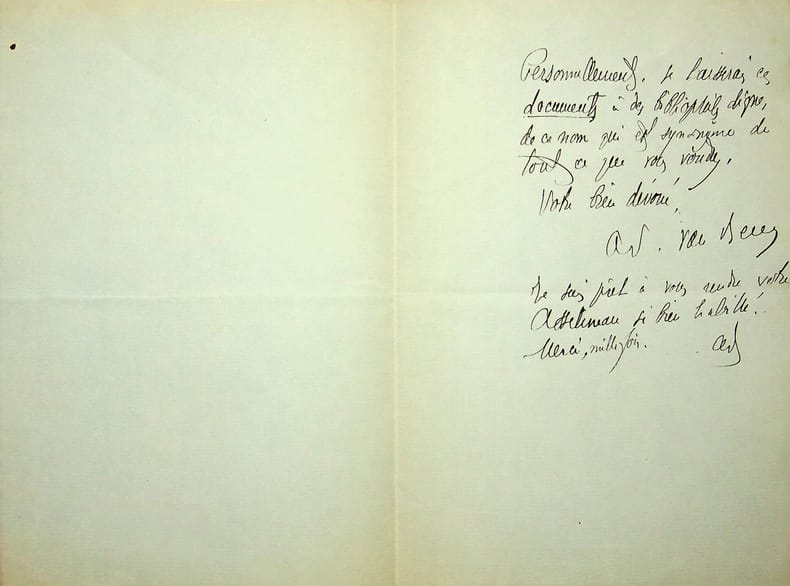 Personnellement, je laisserai ces
documents à des bibliophiles dignes
de ce nom qui est synonyme de
tout ce que vous voudrez.
Votre bien dévoué,
Ad. van Bever
Je suis prêt à vous rendre votre
Asselineau si bien habillé!
Merci, mille fois. Ad